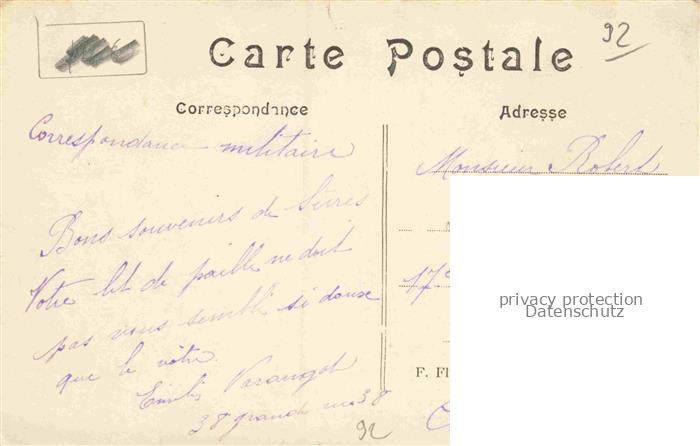 92
Carte Postale
Correspondance
Adresse
Correspondance militaire
Bons souvenirs de Sèvres
Votre lit de paille ne doit
pas vous semble si douce
que le vôtre
38 grande rue 38
92
Monsieur Robert
17e
F. Fl
privacy protection
Datenschutz